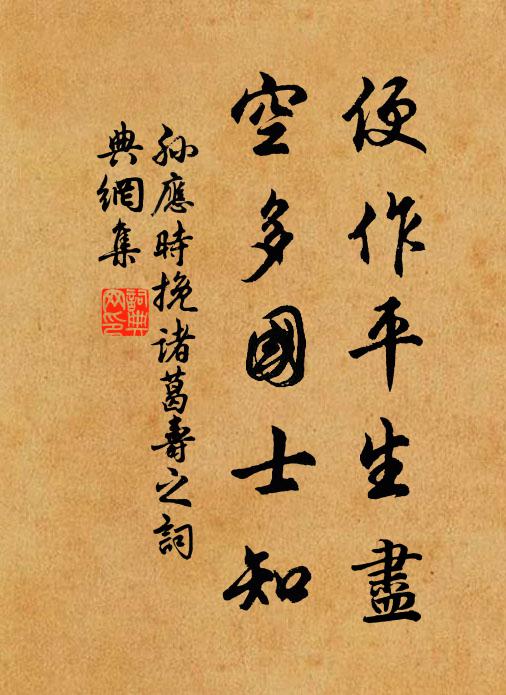 便作平生盡
空多國士知
孫應時挽諸葛壽之詞
典網集
詞典网印